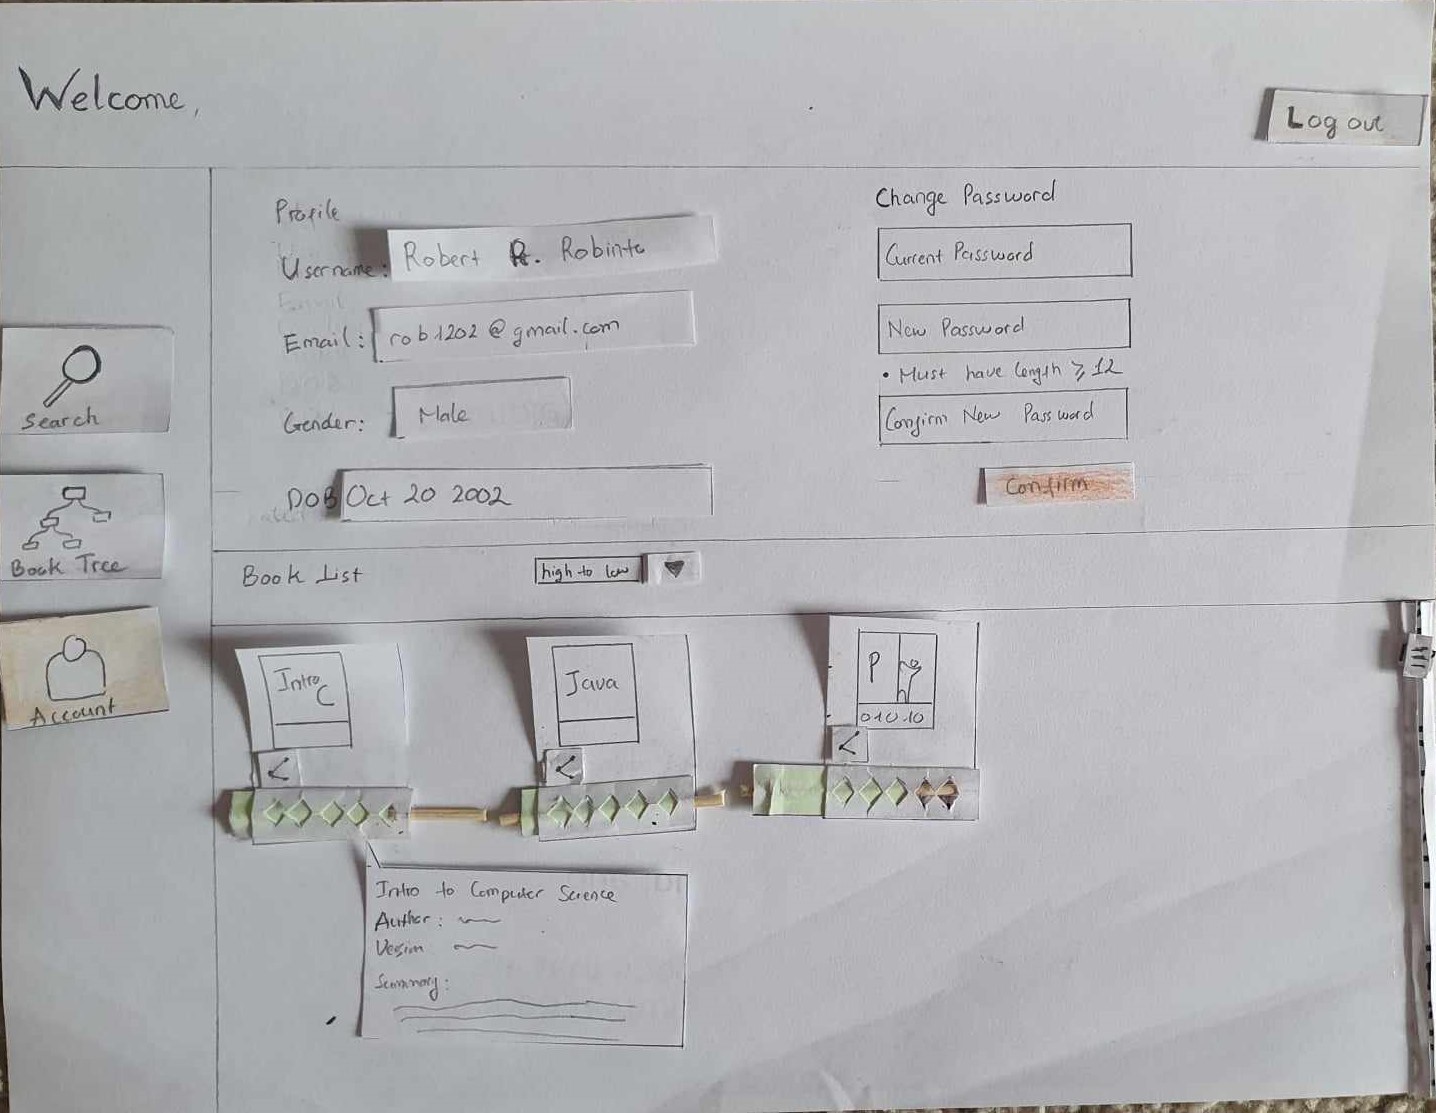 Welcome,
Log out
Profile
Username: Robert R. Robinto
Email: rob1202@gmail.com
Gender: Male
DOB Oct 20 2002
Change Password
Current Password
New Password
• Must have length ≥ 12
Confirm New Password
Confirm
Search
Book Tree
Account
Book List
high to low
Intro C
Java
P
010.10
Intro to Computer Science
Author:
Version
Summary: